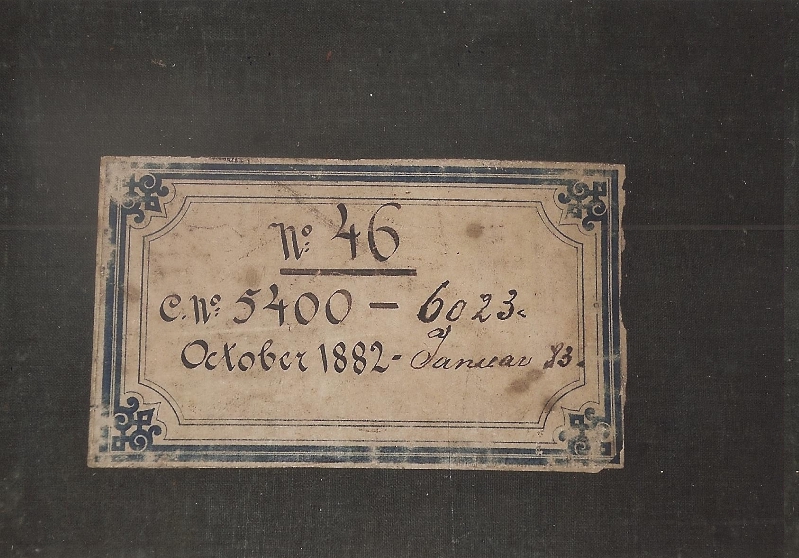 No. 46
C. No. 5400 – 6023.
October 1882 - Januar 83.